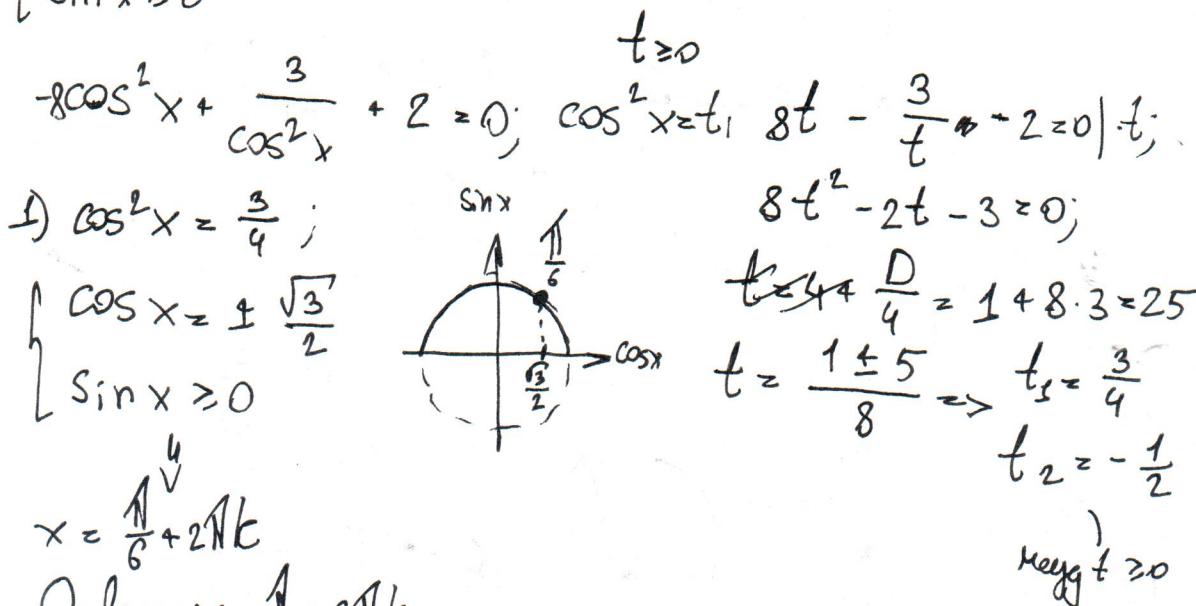 sin x ≥ 0
t ≥ 0
-8cos²x + 3/cos²x + 2 = 0; cos²x = t, 8t - 3/t - 2 = 0 | ·t;
1) cos²x = 3/4; 8t² - 2t - 3 = 0;
{ cos x = ± √3/2
sin x ≥ 0
sin x
π/6
cos x
√3/2
D/4 = 1 + 8·3 = 25
t = (1 ± 5)/8 => t₁ = 3/4
t₂ = - 1/2
t ≥ 0
x = π/6 + 2πk